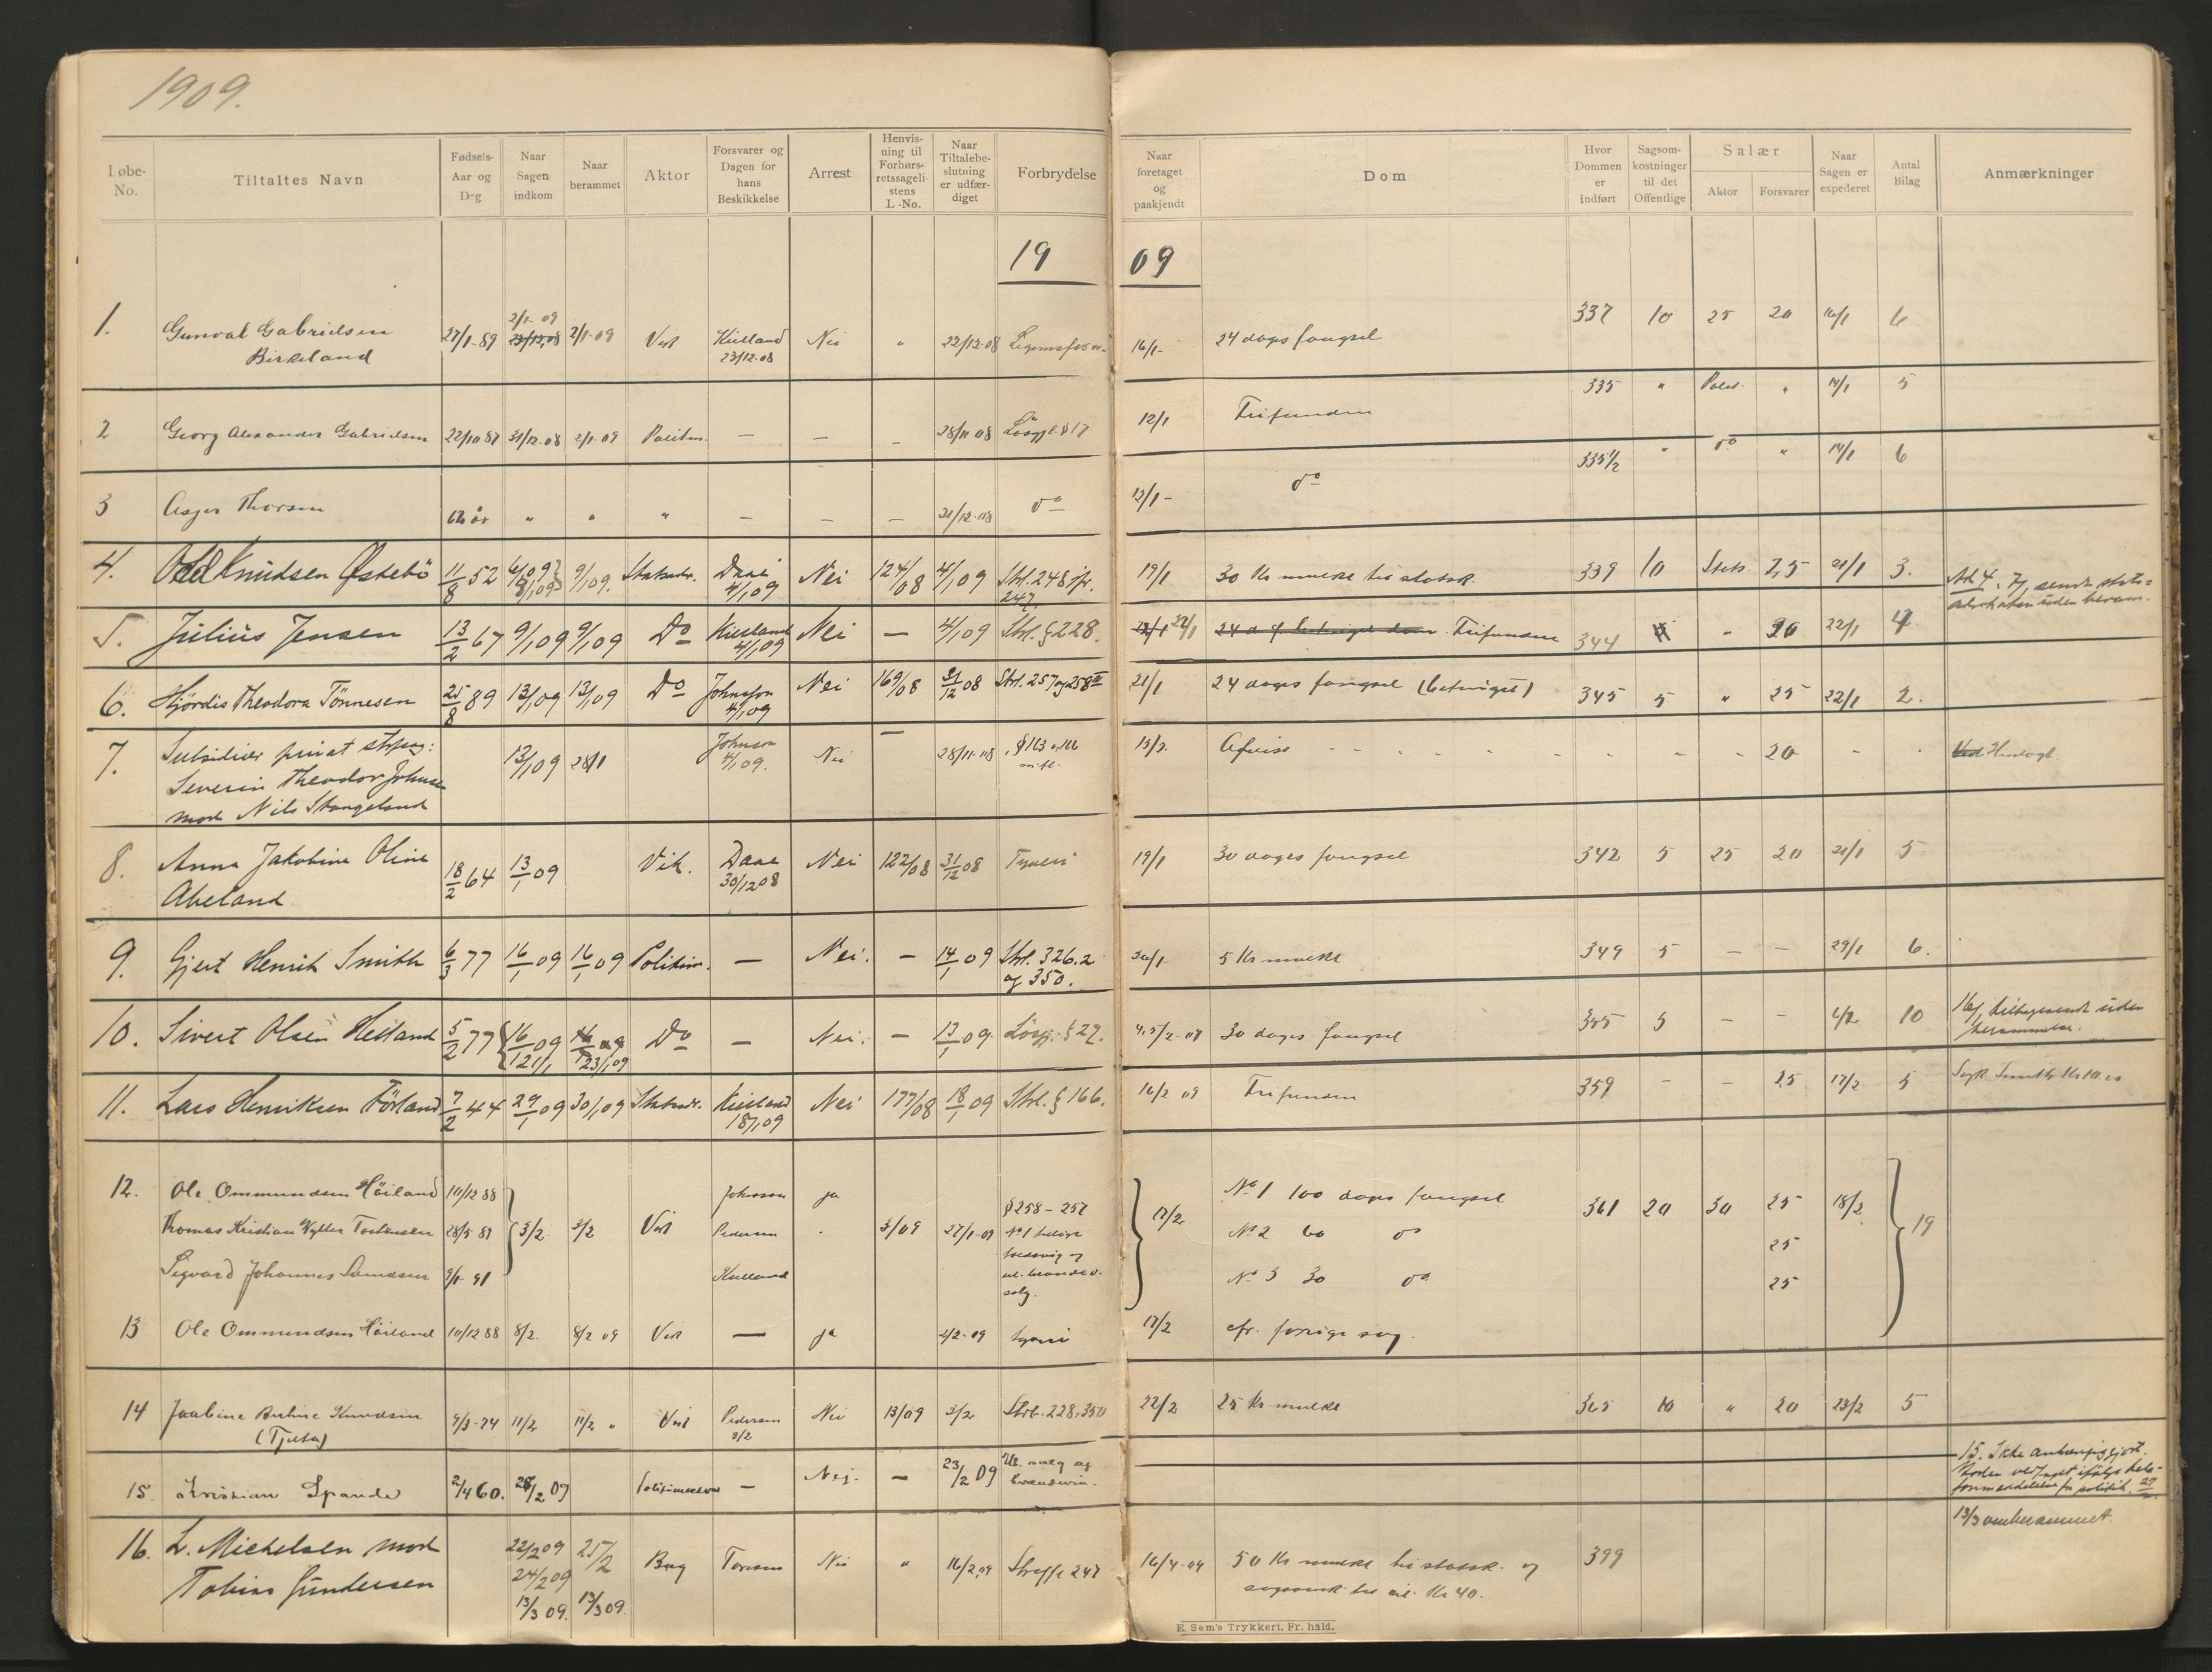 1909.
Løbe-No.
Tiltaltes Navn
Fødsels-Aar og Dag
Naar Sagen indkom
Naar berammet
Aktor
Forsvarer og Dagen for hans Beskikkelse
Arrest
Henvisning til Forhørsretssagelistens L.-No.
Naar Tiltalebeslutning er udfærdiget
Forbrydelse
Naar foretaget og paakjendt
Dom
Hvor Dommen er indført
Sagsomkostninger til det Offentlige
Salær
Aktor
Forsvarer
Naar Sagen er expederet
Antal Bilag
Anmærkninger
19 09
1. Gunval Gabrielsen 27/1-89 2/1-09 23/12.08 2/1-09 Vik Kielland Nei " 22/12-08 16/1- 24 dages fængsel 337 10 25 20 16/1 6
Birkeland 23/12-08
2 Georg Alexander Gabrielsen 22/10 87 31/12-08 2/1-09 Politim. — — — 28/11 08 Løsgjl. § 17 12/1 Frifunden 335 " " 14/1 5
3 Asger Thorsen 62 år " " " — — — 21/12-08 do 12/1- do 335 1/2 " do " 14/1 6
4. Odd Knudsen Østebö 11/8 52 6/1 09 8/1 09 9/1 09. Statsadv. Daae 4/1 09 Nei 124/08 4/1 09 Strl. 248 jfr. 247. 19/1 30 Kr mulkt til statsk. 339 10 Stats. 25 21/1 3.
5. Julius Jensen 13/2 67 9/1 09 9/1 09 Do Kielland 4/1 09 Nei — 4/1 09 Strl. § 228. 22/1 22/1 Frifunden 344 " 20 22/1 4
6. Hjördis Theodora Tönnesen 25/8 89 13/1 09 13/1 09 Do Johnson 4/1 09 Nei 169/08 31/12 08 Strl. 257 og 258 II 21/1 24 dages fængsel (betinget) 345 5 " 25 22/1 2.
7. Subsidiær privat strfsag: 13/1 09 28/1 Johnson 4/1 09. Nei — 28/11-08 15/2. Afvist 20 -
Severin Theodor Johnsen
mod Nils Stangeland
8. Anna Jakobine Oline 18/2 64 13/1 09 Vik. Daae 30/12 08 Nei 122/08 31/12 08 Tyveri 19/1 30 dages fængsel 342 5 25 20 21/1 5
Abeland
9. Gjert Henrik Smith 6/3 77 16/1 09 16/1 09 Politim. — Nei. — 14/1 09 Strl. 326.2 og 350. 26/1- 5 Kr mulkt 349 5 — — 29/1 6.
10. Sivert Olsen Heiland 5/2 77 16/1 09 16/1 09 23/1 09 Do — Nei. — 13/1 09. Løsgj. § 22. 30 dages fængsel 355 5 — — 6/2 10 16/1 tilbagesendt uden berammelse.
11. Lars Henriksen Förland 7/2 44 29/1 09 30/1 09 Statsadv. Kielland 18/1 09 Nei 177/08 18/1 09 Strl. § 166. 16/2 09 Frifunden 359 — — 25 17/2 5
12. Ole Ommundsen Höiland 10/12 88 3/2 3/2 Vik Johnson ja 3/09 27/1-09 § 258 - 257 17/2 No 1 100 dages fængsel 361 20 30 25 18/2 19
Thomas Kristian Torkensen 28/5 89 Pedersen No 2 60 do 25
Sigvard Johannes 9/1- 91 Kielland No 3 30 do 25
13 Ole Ommundsen Höiland 10/12 88 8/2. 8/2 09 Vik — ja 4/2-09 tyveri 17/2 cfr. forrige sag.
14 Jaabine Bertine Knudsen 9/3-74 11/2 11/2 " Vik Pedersen 3/2 Nei 13/09 3/2 Strl. 228, 350 22/2 25 Kr mulkt 365 10 " 20 23/2 5
(Tjelta)
15. Kristian Spande 2/4 60. 24/2 09 Politimesteren — Nei. — 23/2 09 Ul. salg af brændevin. 15. Ikke anhængiggjort.
16. L. Michelsen mod 22/2 09 25/2 Berg Toresen Nei " 16/2.09 Straffl 247 16/4-09 50 Kr mulkt til statsk. og 399 13/3 omberammet.
Tobias Gundersen 24/2 09 13/3 09. 13/3 09. Kr 40.
E. Sem's Trykkeri, Fr. hald.